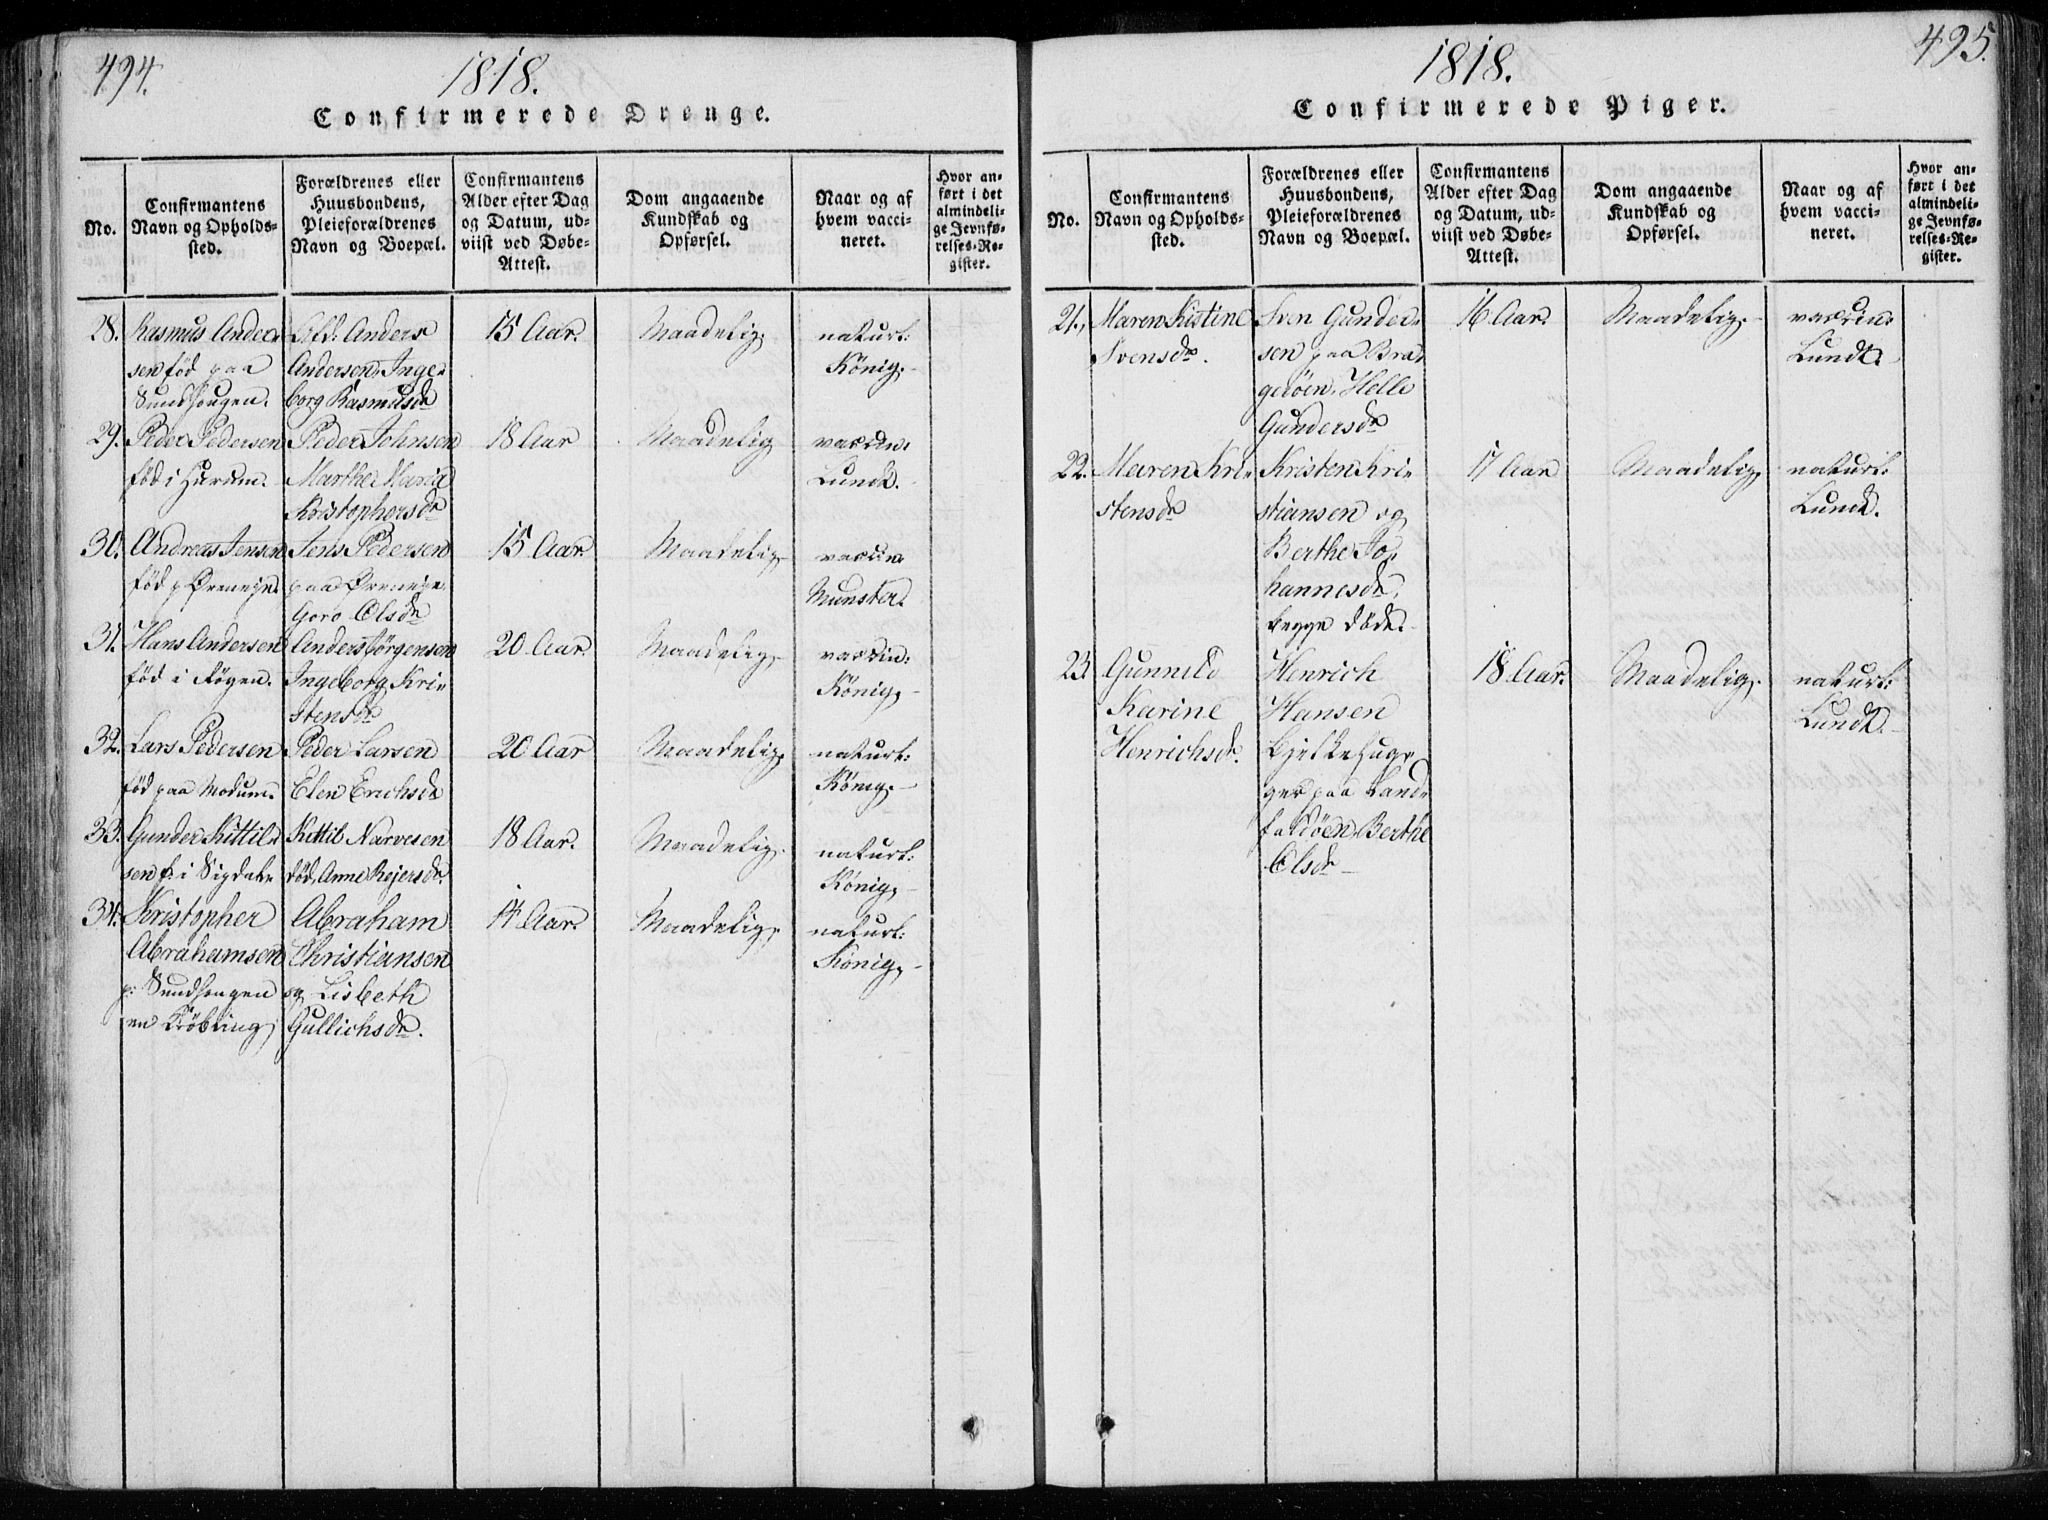 494.
1818.
Confirmerede Drenge.
No.
Confirmantens
Navn og Opholds-
sted.
Forældrenes eller
Huusbondens,
Pleieforældrenes
Navn og Boepæl.
Confirmantens
Alder efter Dag
og Datum, ud-
viist ved Døbe-
Attest.
Dom angaaende
Kundskab og
Opførsel.
Naar og af
hvem vacci-
neret.
Hvor an-
ført i det
almindeli-
ge Jevnfø-
relses-Re-
gister.
28.
Rasmus Ander-
sen fød paa
Sundhougen.
Afd: Anders
Andersen. Inge-
borg Rasmusdr
15 Aar.
Maadelig.
naturl:
König.
29.
Peder Pedersen
fød i Hurum.
Peder Johnsen
Marthe Maria
Kristophersdr
18 Aar
Maadelig
vaccin:
Lundt.
30.
Andreas Jensen
fød p Øreneje.
Jens Pedersen
paa Øreneje.
Goro Olsdr
15 Aar
Maadelig
vaccin
Munster.
31.
Hans Andersen
fød i Røgen.
Anders Jörgensen
Ingeborg Kri-
stensdr
20 Aar.
Maadelig
vaccin:
König.
32.
Lars Pedersen
fød paa Modum.
Peder Larsen
Elen Erichsdr
20 Aar
Maadelig.
naturl:
Kønig.
33.
Gunder Kittil-
sen f: i Sigdal
Kittil Narvesen
død, Anne Rejersdr.
18 Aar.
Maadelig.
naturl:
Kønig.
34.
Kristopher
Abrahamsen
p: Sundhougen
en Krøbling
Abraham
Christiansen
og Lisbeth
Gullichsdr.
14 Aar.
Maadelig.
naturl:
Kønig.
495.
1818.
Confirmerede Piger.
No.
Confirmantens
Navn og Opholds-
sted.
Forældrenes eller
Huusbondens,
Pleieforældrenes
Navn og Boepæl.
Confirmantens
Alder efter Dag
og Datum, ud-
viist ved Døbe-
Attest.
Dom angaaende
Kundskab og
Opførsel.
Naar og af
hvem vacci-
neret.
Hvor an-
ført i det
almindeli-
ge Jevnfø-
relses-Re-
gister.
21.
Maren Kistine
Svensdr.
Sven Gunder-
sen paa Bra-
gerøen, Helle
Gundersdr
16 Aar.
Maadelig.
vaccin:
Lundt.
22.
Maren Kri-
stensdr
Kristen Kri-
stiansen og
Berthe Jo-
hannesdr,
begge døde.
17 Aar
Maadelig
naturl:
Lundt.
23.
Gunnild
Karine
Henrichsdr.
Henrich
Hansen
Bjelkehug-
ger paa Land-
faldøen, Berthe
Olsdr
18 Aar.
Maadelig.
naturl:
Lundt.